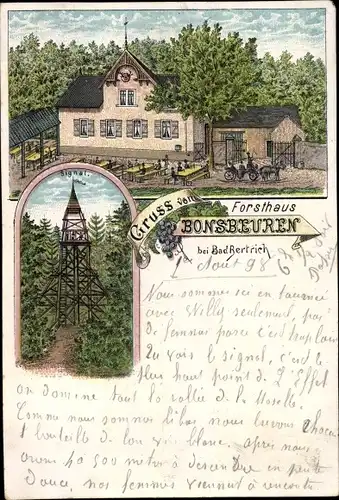 Signal.
Gruss vom
Forsthaus
BONSBEUREN
bei Bad Bertrich
1 Aout 98
Nous sommes ici en tournée
avec Willy seulement, pas
de femmes parce c'est trop loin
Tu vois le signal, c'est le
plus haut point de l'Eifel
on domine tout la vallée de la Moselle
Comme nous sommes là bas nous buvons chacun
1 bouteille de bon vin blanc. après nous
avons 500 mètres à descendre en pente
douce, nos femmes viennent à rencontre